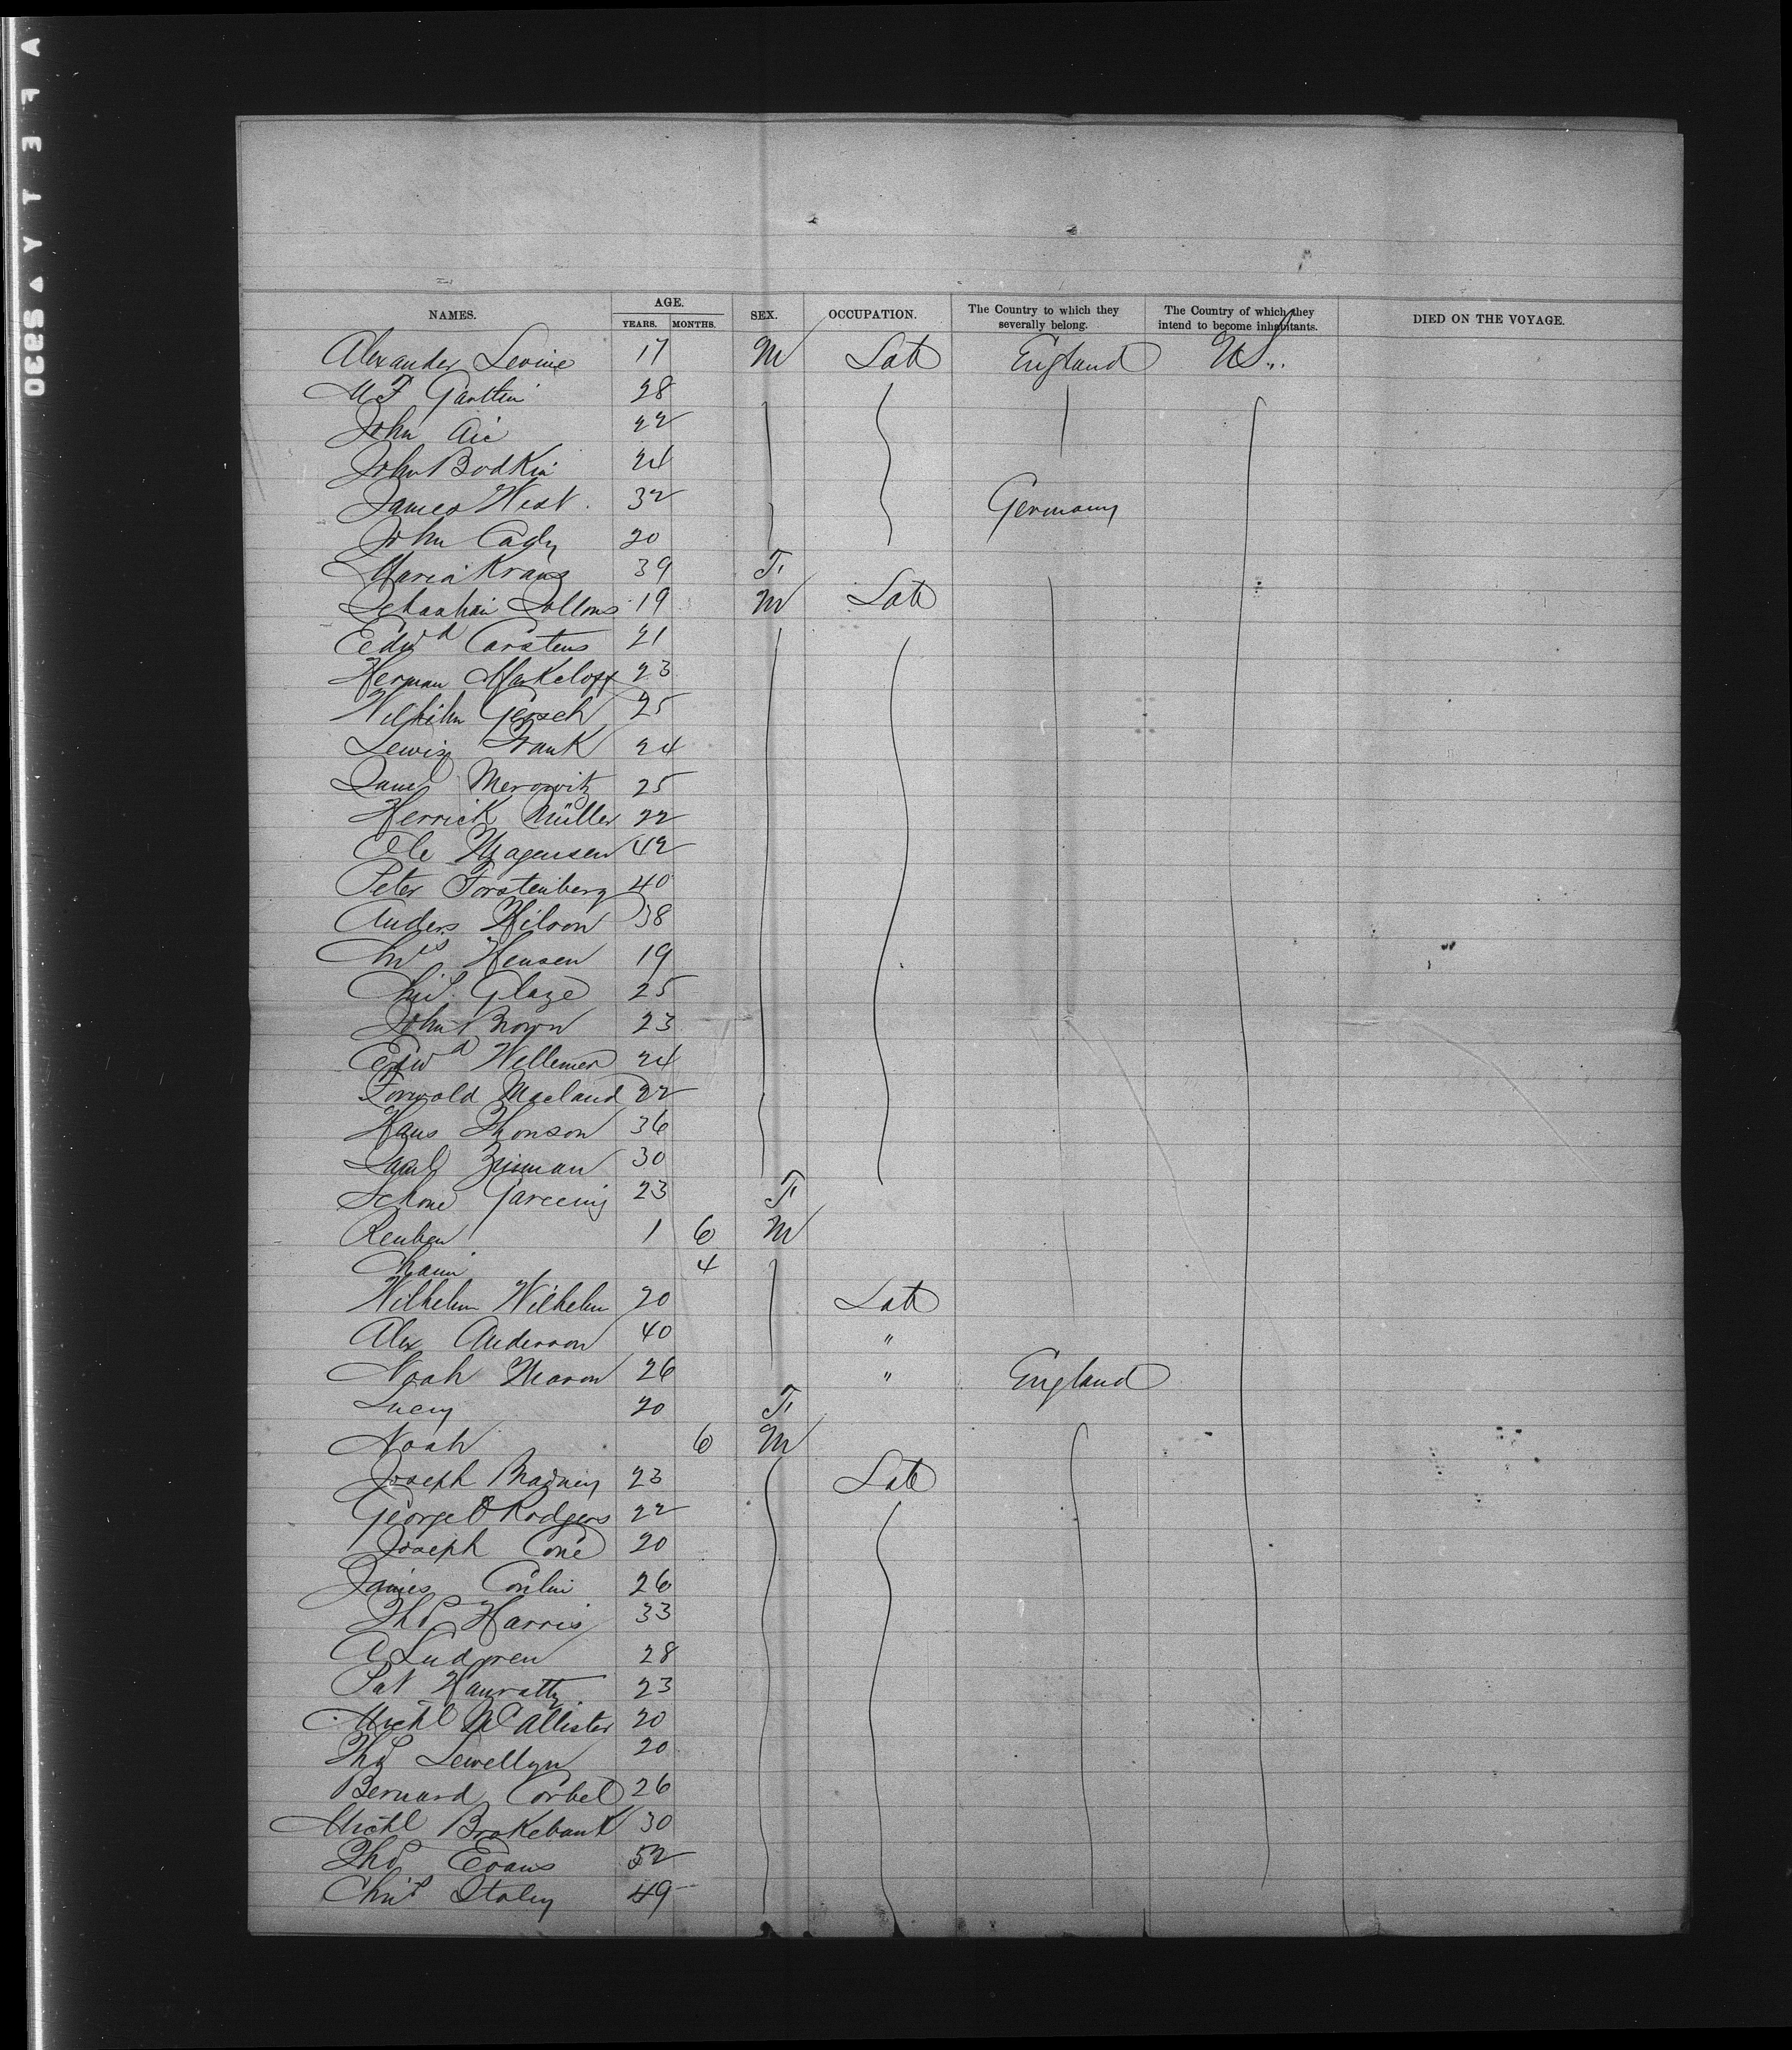 SAFETY ▲ S930
NAMES. AGE. SEX. OCCUPATION. The Country to which they severally belong. The Country of which they intend to become inhabitants. DIED ON THE VOYAGE.
YEARS. MONTHS.
Alexander Levine 17 M Lab England U.S..
M F 28
John Aie 22
John Bodkin 24
James West 32 Germany
John Cady 20
Maria Kranz 39 F
19 M Lab
Edwd Carstens 21
Herman 23
Wilhelm Gersch 25
Lewis Frank 24
Merowitz 25
Herrick Müller 22
Ole Magensen 42
Peter Forstenberg 40
Anders Nilson 38
Hensen 19
Glaze 25
John Brown 23
Edwd Willemer 24
Torwald Maeland 22
Hans Thonson 36
30
23 F
Reuben 1 6 M
Chaim 4
Wilhelm Wilhelm 20 Lab
Alex Anderson 40 "
Noah Mason 26 " England
Lucy 20 F
Noah 6 M
Joseph 23 Lab
George O Rodgers 22
Joseph Cone 20
James Conlin 26
Thos Harris 33
A Ludgren 28
Pat Hanratty 23
Michl McAllister 20
Thos Lewellyn 20
Bernard Corbet 26
Michl Brokebank 30
Thos Evans 52
Staley 49